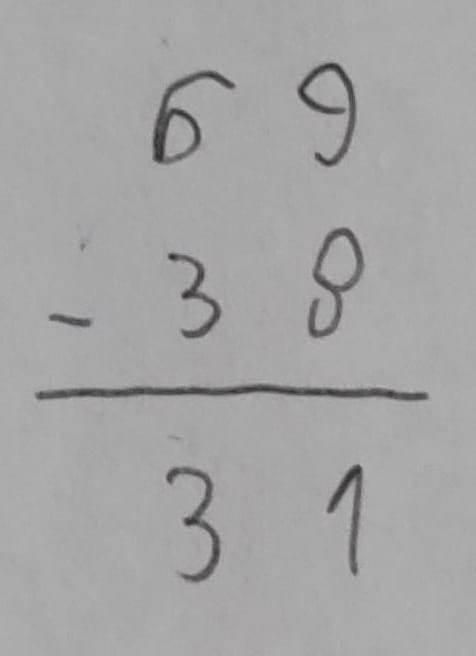 69
- 38
31